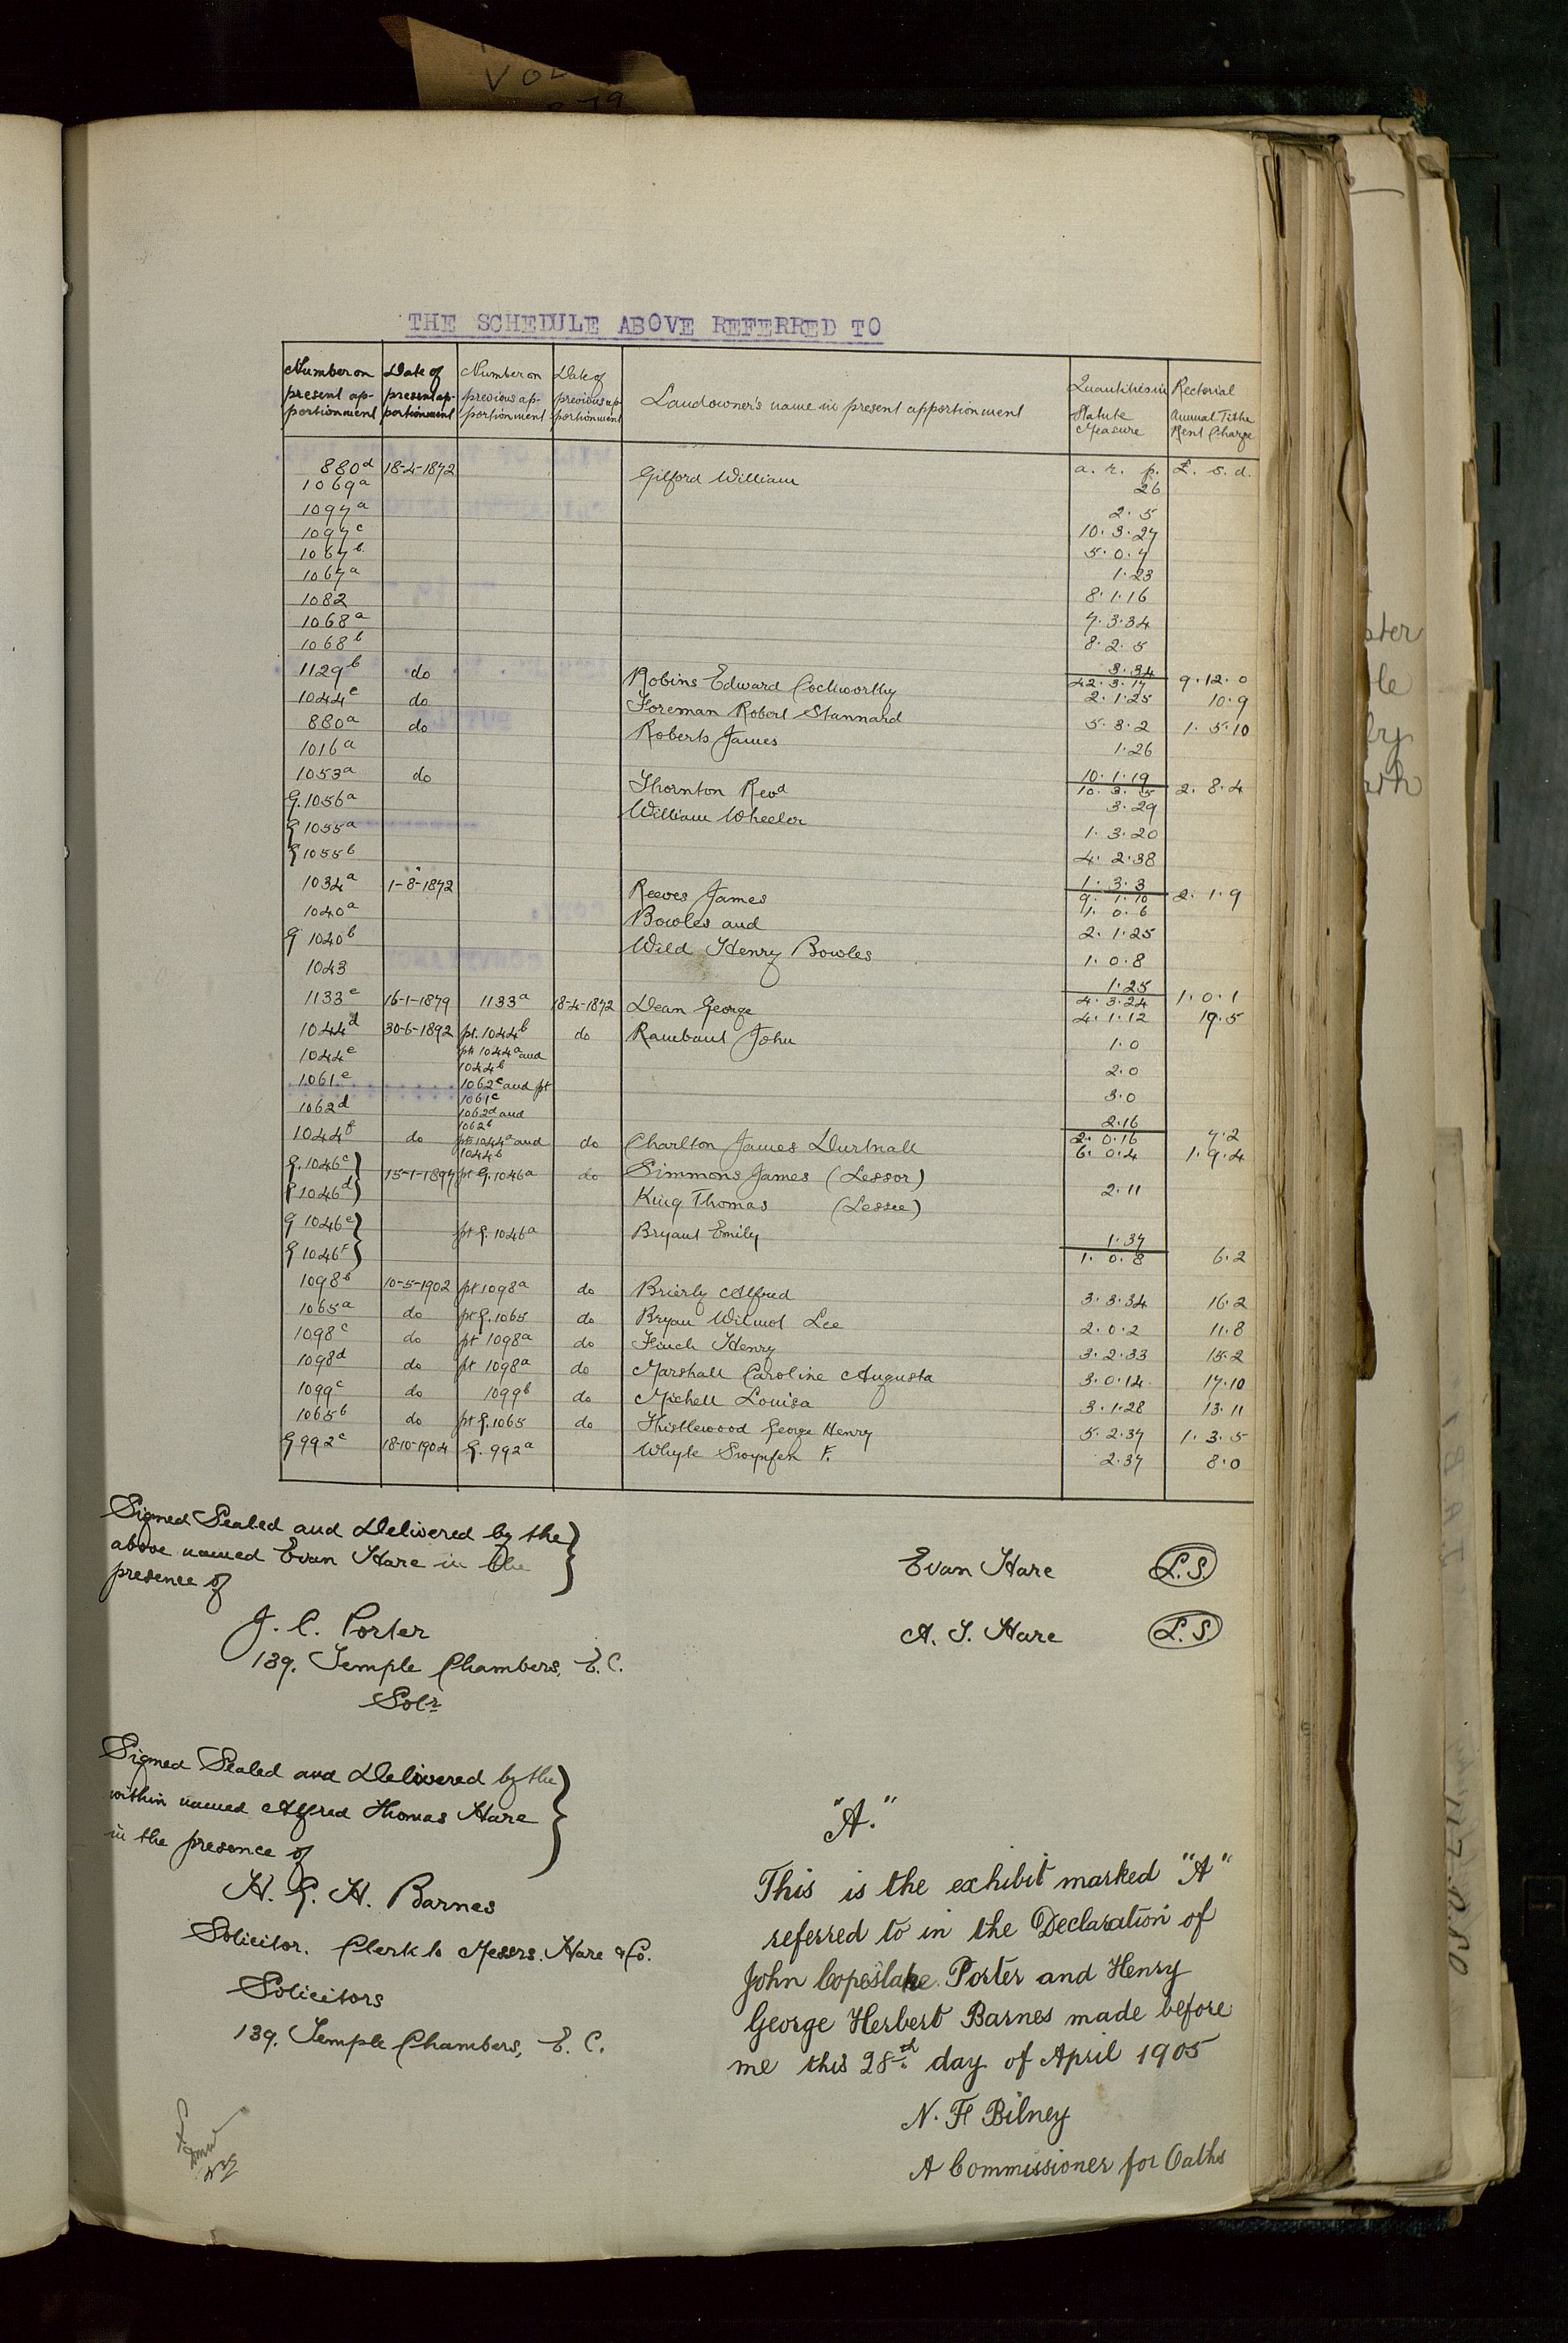 THE SCHEDULE ABOVE REFERRED TO
Number on present ap-portionment | Date of present ap-portionment | Number on previous ap-portionment | Date of previous ap-portionment | Landowner's name in present apportionment | Quantities in Statute Measure | Rectorial Annual Tithe Rent Charge
880d 18-4-1872 Gilford William a. r. p. £. s. d.
1069a 26
1097a 2. 5
1097c 10. 3. 27
1067b 5. 0. 7
1067a 1. 23
1082 8. 1. 16
1068a 7. 3. 34
1068b 8. 2. 5
3. 34
1129b do Robins Edward Cockworthy 42. 3. 17 9. 12. 0
1044c do Foreman Robert Stannard 2. 1. 25 10. 9
880a do Roberts James 5. 3. 2 1. 5. 10
1016a 1. 26
10. 1. 19
1053a do Thornton Revd 10. 3. 5 2. 8. 4
G. 1056a William Wheeler 3. 29
G 1055a 1. 3. 20
G 1055b 4. 2. 38
1. 3. 3
1034a 1-8-1872 Reeves James 9. 1. 10 2. 1. 9
1040a Bowles and 1. 0. 6
G 1040b Wild Henry Bowles 2. 1. 25
1043 1. 0. 8
1. 25
1133e 16-1-1879 1133a 18-4-1872 Dean George 4. 3. 24 1. 0. 1
4. 1. 12 19. 5
1044d 30-6-1892 pt. 1044b do Rambaut John 1. 0
1044e pts 1044a and 1044b 2. 0
1061e 1062c and pt 1061c 3. 0
1062d 1062d and 1062b 2. 16
2. 0. 16 7. 2
1044f do pts 1044a and 1044b do Charlton James Durtnall 6. 0. 4 1. 9. 4
G. 1046c } 15-1-1897 pt G. 1046a do Simmons James (Lessor)
G 1046d } King Thomas (Lessee) 2. 11
G 1046e } pt G. 1046a Bryant Emily 1. 37
G 1046f } 1. 0. 8 6. 2
1098b 10-5-1902 pt 1098a do Brierly Alfred 3. 3. 34 16. 2
1065a do pt G. 1065 do Bryan Wilmot Lee 2. 0. 2 11. 8
1098c do pt 1098a do Finch Henry 3. 2. 33 15. 2
1098d do pt 1098a do Marshall Caroline Augusta 3. 0. 14 17. 10
1099c do 1099b do Michell Louisa 3. 1. 28 13. 11
1065b do pt G. 1065 do Thistlewood George Henry 5. 2. 37 1. 3. 5
G 992c 18-10-1904 G. 992a Whyte Swynfen F. 2. 37 8. 0
Signed Sealed and Delivered by the }
above named Evan Hare in the
presence of
Evan Hare L.S.
J. C. Porter
A. T. Hare L.S
139. Temple Chambers, E.C.
Solr
Signed Sealed and Delivered by the }
within named Alfred Thomas Hare
in the presence of
H. G. H. Barnes
Solicitor. Clerk to Messrs. Hare & Co.
Solicitors
139. Temple Chambers, E. C.
"A."
This is the exhibit marked "A"
referred to in the Declaration of
John Copeslake Porter and Henry
George Herbert Barnes made before
me this 28th day of April 1905
N. F Bilney
A Commissioner for Oaths